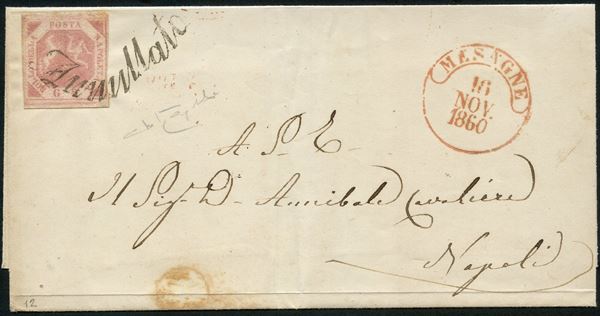 POSTA
NAPOLETANA
G
Annullato
MESAGNE
16
NOV.
1860
A. S. E.
Il Sig. D. Annibale Cavaliere
Napoli
12